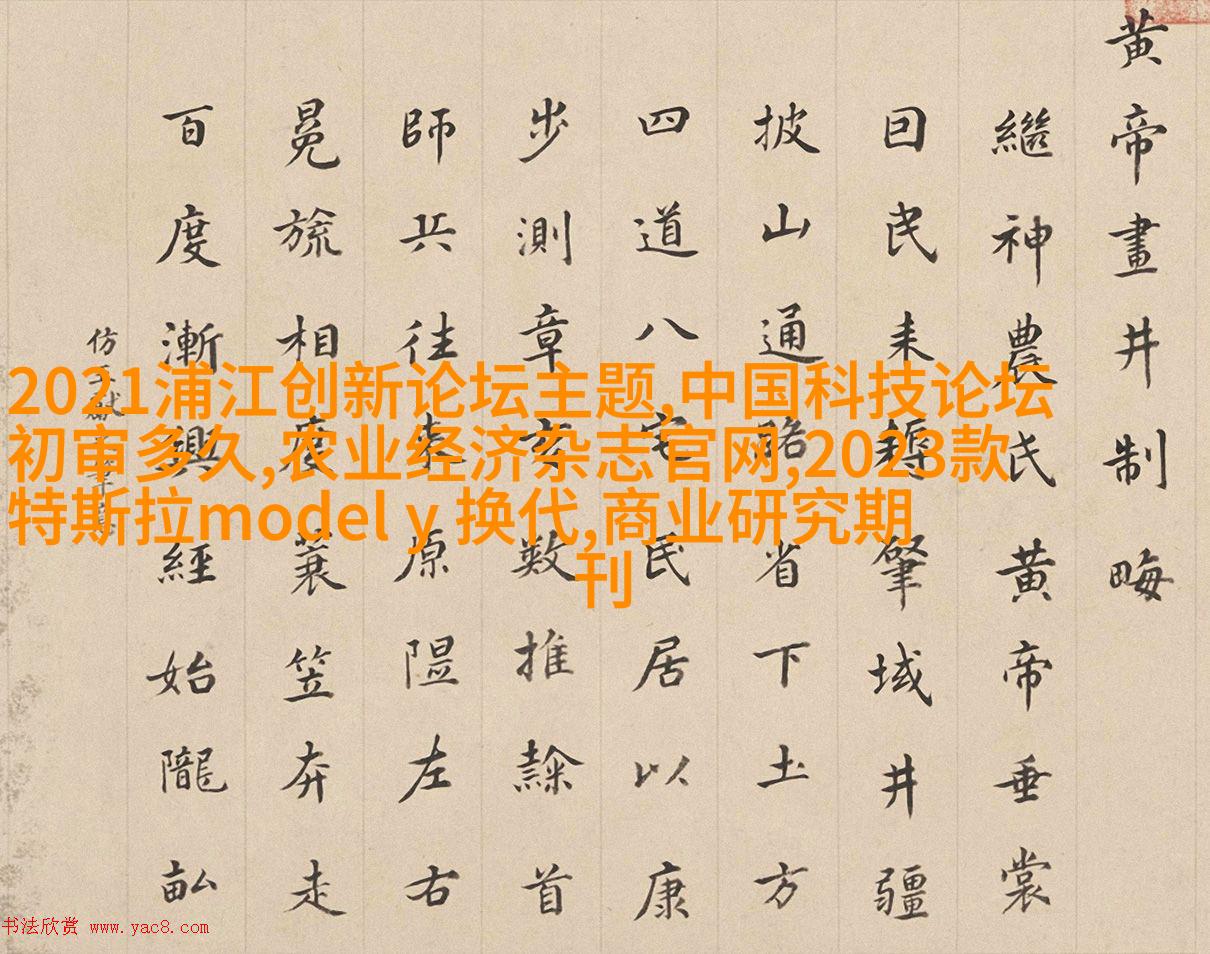 黄帝畫井制畮
繼神農氏黄帝垂裳
囙民耒耨肇域井疆
披山通略省下土方
四道八宅民居以康
步測章亥數推隷首
師兵往來原隰左右
冕旒相度蓑笠奔走
百度漸興經始隴畝
仿王獻
2021浦江创新论坛主题,中国科技论坛
初审多久,农业经济杂志官网,2023款
特斯拉model y 换代,商业研究期
刊
书法欣赏 www.yac8.com